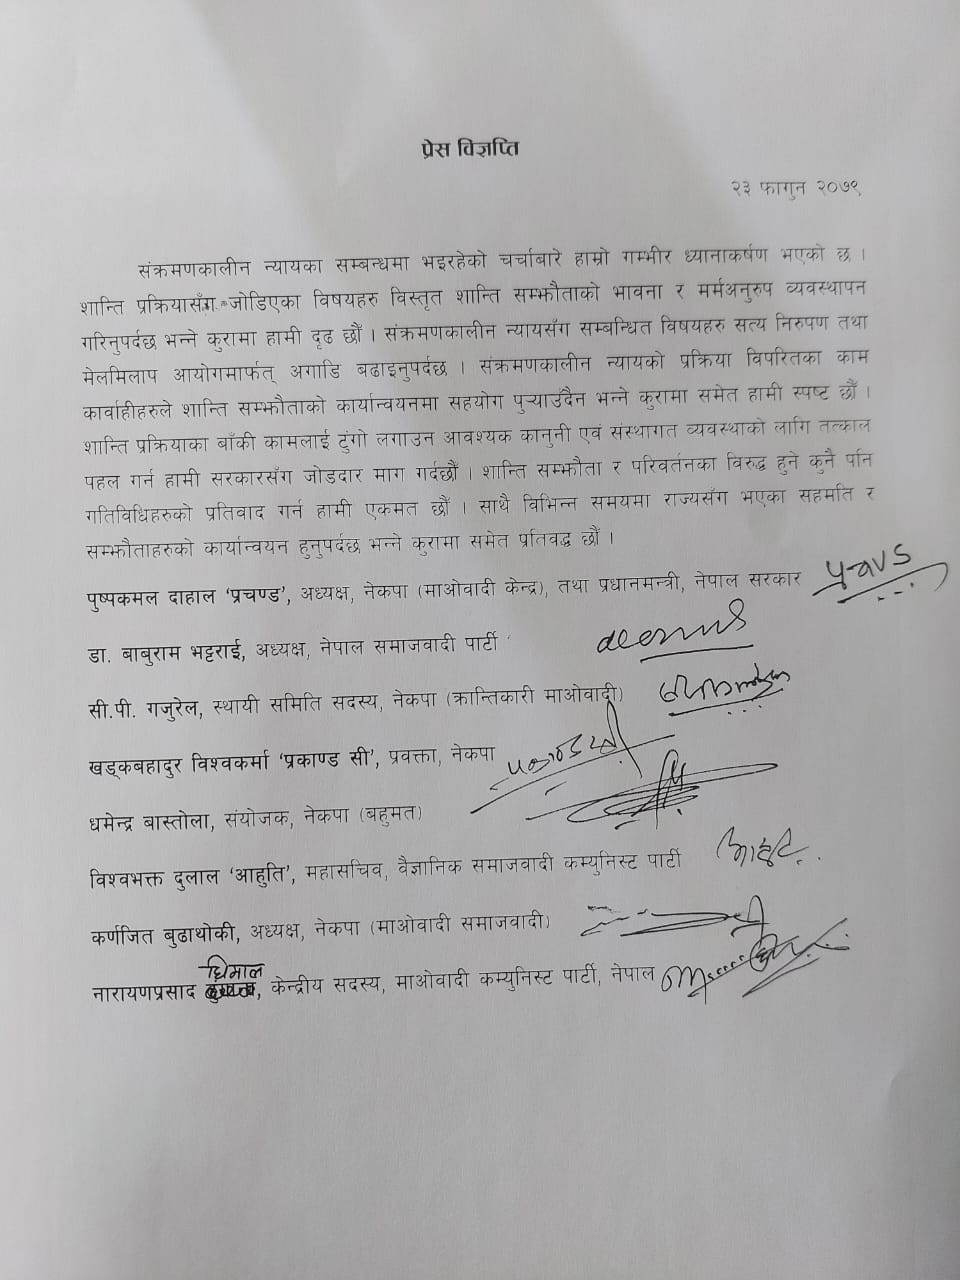 प्रेस विज्ञप्ति
२३ फागुन २०७९
संक्रमणकालीन न्यायका सम्बन्धमा भइरहेको चर्चाबारे हाम्रो गम्भीर ध्यानाकर्षण भएको छ ।
शान्ति प्रक्रियासँग जोडिएका विषयहरु विस्तृत शान्ति सम्झौताको भावना र मर्मअनुरुप व्यवस्थापन
गरिनुपर्दछ भन्ने कुरामा हामी दृढ छौँ । संक्रमणकालीन न्यायसँग सम्बन्धित विषयहरु सत्य निरुपण तथा
मेलमिलाप आयोगमार्फत् अगाडि बढाइनुपर्दछ । संक्रमणकालीन न्यायको प्रक्रिया विपरितका काम
कार्वाहीहरुले शान्ति सम्झौताको कार्यान्वयनमा सहयोग पुर्‍याउँदैन भन्ने कुरामा समेत हामी स्पष्ट छौँ ।
शान्ति प्रक्रियाका बाँकी कामलाई टुंगो लगाउन आवश्यक कानुनी एवं संस्थागत व्यवस्थाको लागि तत्काल
पहल गर्न हामी सरकारसँग जोडदार माग गर्दछौँ । शान्ति सम्झौता र परिवर्तनका विरुद्ध हुने कुनै पनि
गतिविधिहरुको प्रतिवाद गर्न हामी एकमत छौँ । साथै विभिन्न समयमा राज्यसँग भएका सहमति र
सम्झौताहरुको कार्यान्वयन हुनुपर्दछ भन्ने कुरामा समेत प्रतिवद्ध छौँ ।
पुष्पकमल दाहाल ‘प्रचण्ड’, अध्यक्ष, नेकपा (माओवादी केन्द्र), तथा प्रधानमन्त्री, नेपाल सरकार
डा. बाबुराम भट्टराई, अध्यक्ष, नेपाल समाजवादी पार्टी
सी.पी. गजुरेल, स्थायी समिति सदस्य, नेकपा (क्रान्तिकारी माओवादी)
खड्कबहादुर विश्वकर्मा ‘प्रकाण्ड सी’, प्रवक्ता, नेकपा
धमेन्द्र बास्तोला, संयोजक, नेकपा (बहुमत)
विश्वभक्त दुलाल ‘आहुति’, महासचिव, वैज्ञानिक समाजवादी कम्युनिस्ट पार्टी
कर्णजित बुढाथोकी, अध्यक्ष, नेकपा (माओवादी समाजवादी)
नारायणप्रसाद धिमाल, केन्द्रीय सदस्य, माओवादी कम्युनिस्ट पार्टी, नेपाल